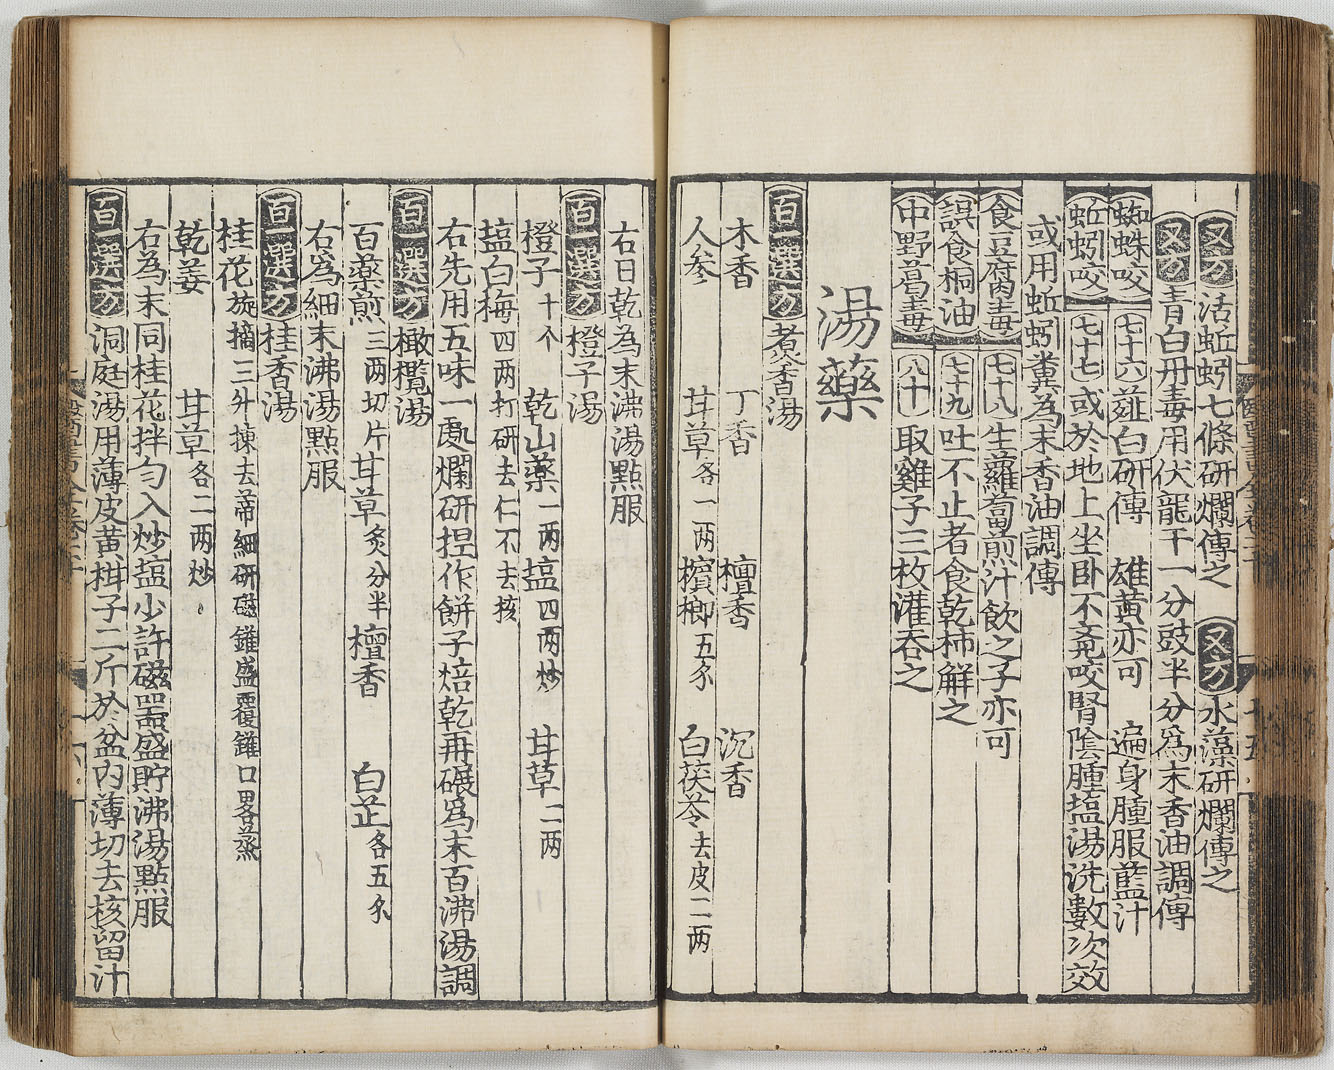 又方 活蚯蚓七條研爛傅之 又方 水藻研爛傅之
又方 青白丹毒用伏龍干一分豉半分為末香油調傅
蜘蛛咬 七十六 薤白研傅 雄黃亦可 遍身腫服藍汁
蚯蚓咬 七十七 或於地上坐卧不覔咬腎陰腫塩湯洗數次效
或用蚯蚓糞為末香油調傅
食豆腐中毒 七十八 生蘿蔔煎汁飲之子亦可
誤食桐油 七十九 吐不止者食乾柿解之
中野葛毒 八十 取雞子三枚灌吞之
湯藥
百一選方 煮香湯
木香 丁香 檀香 沉香
人参 甘草各一两 檳榔五錢 白茯苓去皮二两
右日乾為末沸湯點服
百一選方 橙子湯
橙子十个 乾山藥一两 塩四两炒 甘草二两
塩白梅四两打研去仁不去核
右先用五味一處爛研捏作餅子焙乾再碾為末百沸湯調
百一選方 橄欖湯
百藥煎三两切片 甘草炙分半 檀香 白芷各五錢
右為細末沸湯點服
百一選方 桂香湯
桂花旋摘三升揀去蒂細研磁罐盛覆罐口畧蒸
乾姜 甘草各二两炒
右為末同桂花拌勻入炒塩少許磁器盛貯沸湯點服
百一選方 洞庭湯用薄皮黃柑子二斤於盆内薄切去核留汁